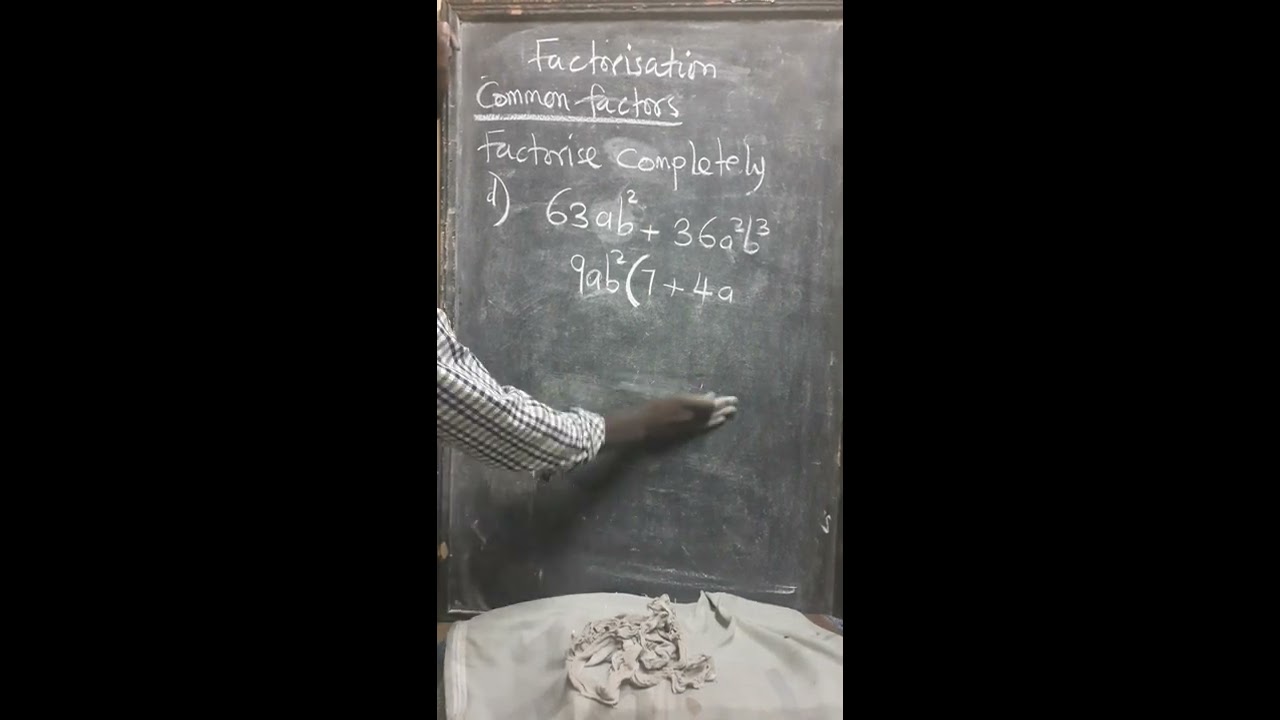 Factorisation
Common factors
Factorise completely
d) 63ab² + 36a²b³
9ab²(7 + 4a